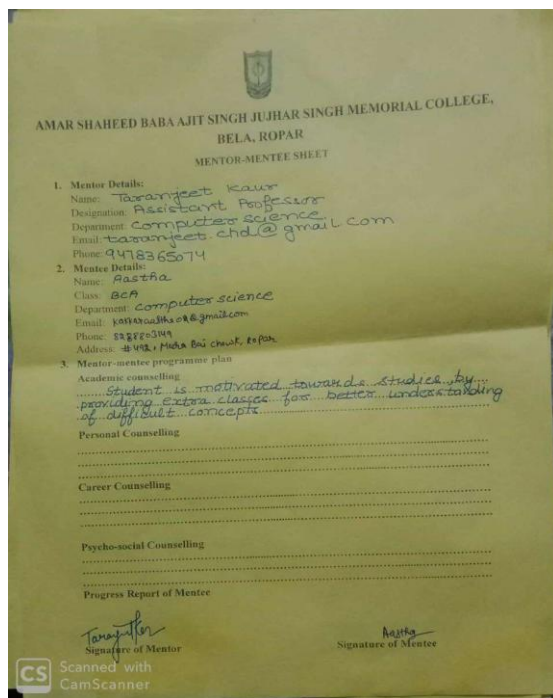 AMAR SHAHEED BABA AJIT SINGH JUJHAR SINGH MEMORIAL COLLEGE,
BELA, ROPAR
MENTOR-MENTEE SHEET
1. Mentor Details:
Name: Taranjeet Kaur
Designation: Assistant Professor
Department: Computer science
Email: taranjeet.chd@gmail.com
Phone: 9478365074
2. Mentee Details:
Name: Aastha
Class: BCA
Department: Computer science
Email:
Phone:
Address: #492, Mira Bai chowk, Ropar
3. Mentor-mentee programme plan
Academic counselling
Student is motivated towards studies by
providing extra classes for better understanding
of difficult concepts
Personal Counselling
Career Counselling
Psycho-social Counselling
Progress Report of Mentee
Signature of Mentor
Aastha
Signature of Mentee
CS Scanned with
CamScanner